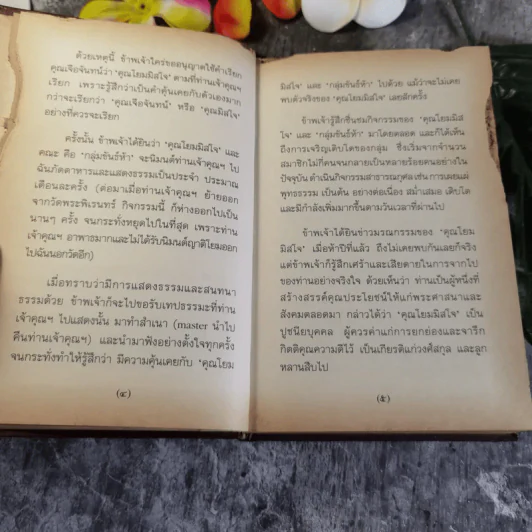 ด้วยเหตุนี้ ข้าพเจ้าใคร่ขออนุญาตใช้คำเรียก
คุณเจือจันทน์ว่า 'คุณโยมมิสโจ' ตามที่ท่านเจ้าคุณฯ
เรียก เพราะรู้สึกว่าเป็นคำคุ้นเคยกับตัวเองมาก
กว่าจะเรียกว่า 'คุณเจือจันทน์' หรือ 'คุณมิสโจ'
อย่างที่ควรจะเรียก
ครั้งนั้น ข้าพเจ้าได้ยินว่า 'คุณโยมมิสโจ' และ
คณะ คือ 'กลุ่มขันธ์ห้า' จะนิมนต์ท่านเจ้าคุณฯ ไป
ฉันภัตตาหารและแสดงธรรมเป็นประจำ ประมาณ
เดือนละครั้ง (ต่อมาเมื่อท่านเจ้าคุณฯ ย้ายออก
จากวัดพระพิเรนทร์ กิจกรรมนี้ ก็ห่างออกไปเป็น
นานๆ ครั้ง จนกระทั่งหยุดไปในที่สุด เพราะท่าน
เจ้าคุณฯ อาพาธมากและไม่ได้รับนิมนต์ญาติโยมออก
ไปฉันนอกวัดอีก)
เมื่อทราบว่ามีการแสดงธรรมและสนทนา
ธรรมด้วย ข้าพเจ้าก็จะไปขอรับเทปธรรมะที่ท่าน
เจ้าคุณฯ ไปแสดงนั้น มาทำสำเนา (master นำไป
คืนท่านเจ้าคุณฯ) และนำมาฟังอย่างตั้งใจทุกครั้ง
จนกระทั่งทำให้รู้สึกว่า มีความคุ้นเคยกับ 'คุณโยม
(๔)
มิสโจ' และ 'กลุ่มขันธ์ห้า' ไปด้วย แม้ว่าจะไม่เคย
พบตัวจริงของ 'คุณโยมมิสโจ' เลยสักครั้ง
ข้าพเจ้ารู้สึกชื่นชมกิจกรรมของ 'คุณโยมมิส
โจ' และ 'กลุ่มขันธ์ห้า' มาโดยตลอด และก็ได้เห็น
ถึงการเจริญเติบโตของกลุ่ม ซึ่งเริ่มจากจำนวน
สมาชิกไม่กี่คนจนกลายเป็นหลายร้อยคนอย่างใน
ปัจจุบัน ดำเนินกิจกรรมสาธารณกุศล เช่น การเผยแผ่
พุทธธรรม เป็นต้น อย่างต่อเนื่อง สม่ำเสมอ เติบโต
และมีกำลังเพิ่มมากขึ้นตามวันเวลาที่ผ่านไป
ข้าพเจ้าได้ยินข่าวมรณกรรมของ 'คุณโยม
มิสโจ' เมื่อห้าปีที่แล้ว ถึงไม่เคยพบกันเลยก็จริง
แต่ข้าพเจ้าก็รู้สึกเศร้าและเสียดายในการจากไป
ของท่านอย่างจริงใจ ด้วยเห็นว่า ท่านเป็นผู้หนึ่งที่
สร้างสรรค์คุณประโยชน์ให้แก่พระศาสนาและ
สังคมตลอดมา กล่าวได้ว่า 'คุณโยมมิสโจ' เป็น
ปูชนียบุคคล ผู้ควรค่าแก่การยกย่องและจารึก
กิตติคุณความดีไว้ เป็นเกียรติแก่วงศ์สกุล และลูก
หลานสืบไป
(๕)